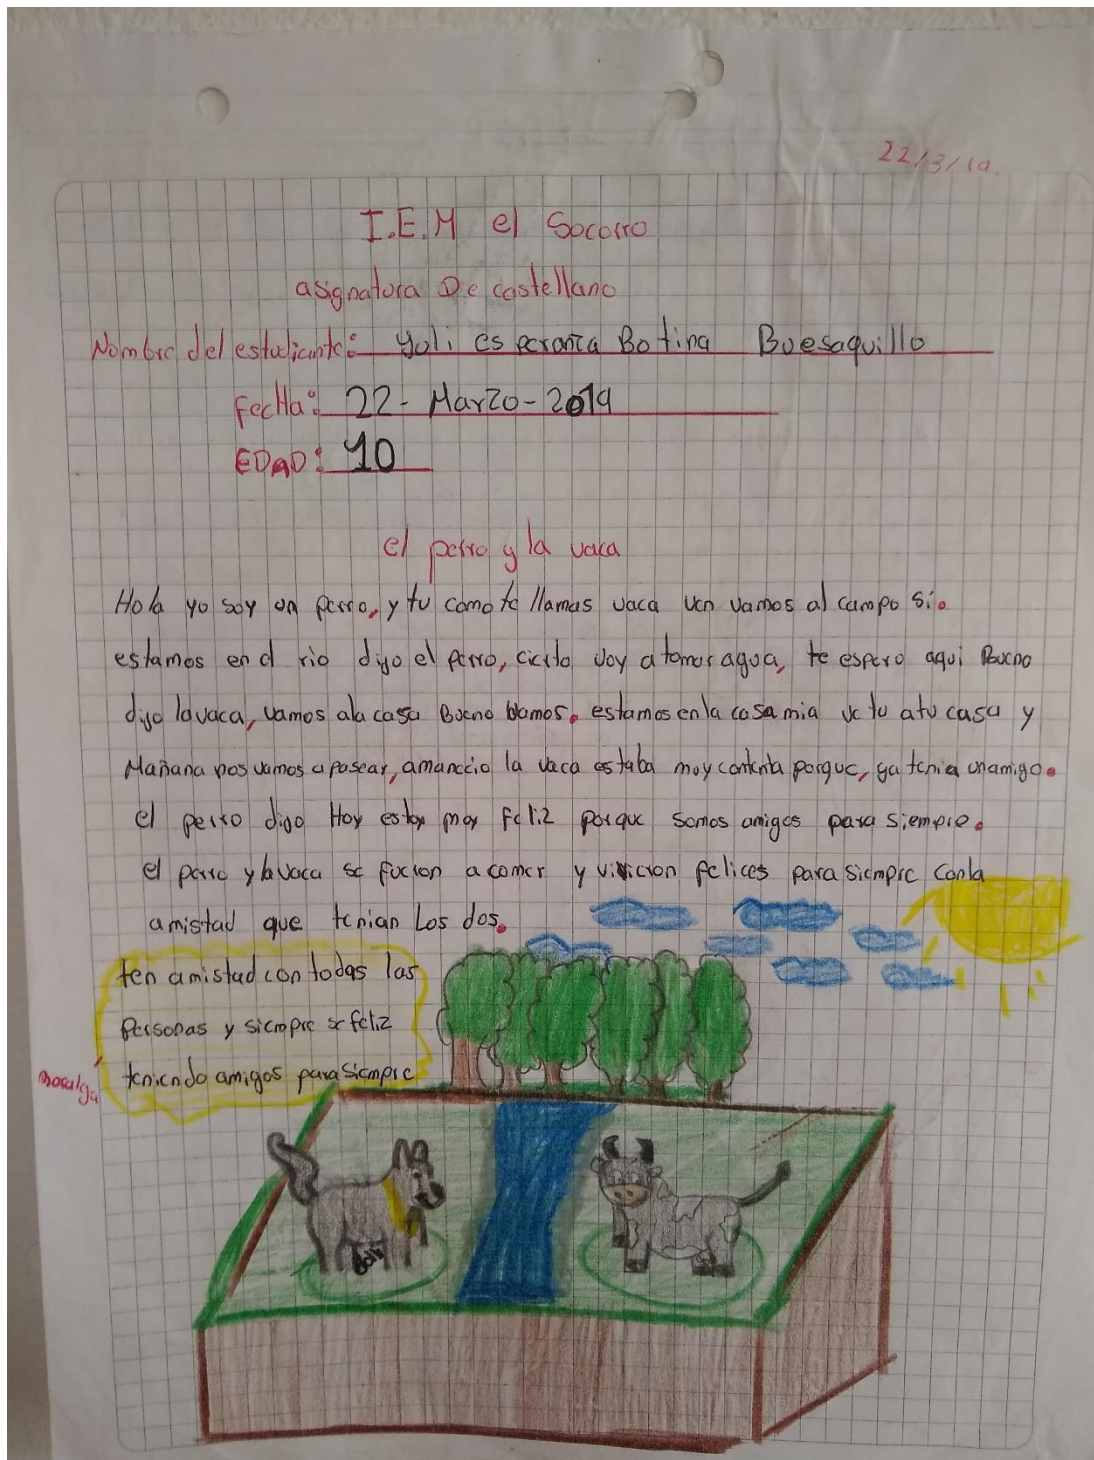 22/3/19.
I.E.M el Socorro
asignatura De castellano
Nombre del estudiante: Yoli esperanza Botina Buesaquillo
fecHa: 22- Marzo-2019
EDAD: 10
el perro y la vaca
Hola yo soy un perro, y tu como te llamas vaca ven vamos al campo si.
estamos en el rio dijo el perro, cierto voy a tomar agua, te espero aqui Bueno
dijo la vaca, vamos ala casa Bueno vamos. estamos en la casa mia ve tu atu casa y
Mañana nos vamos a pasear, amanecio la vaca estaba muy contenta porque, ya tenia un amigo.
el perro dijo Hoy estoy muy feliz porque somos amigos para siempre.
el perro y la vaca se fueron a comer y vivieron felices para siempre con la
amistad que tenian Los dos.
ten amistad con todas las
personas y siempre se feliz
teniendo amigos para siempre